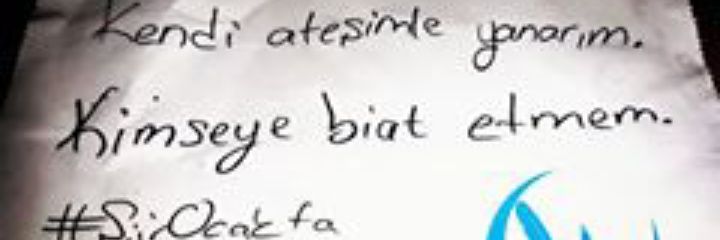 Kendi ateşimle yanarım.
Kimseye biat etmem.
#ŞiirOcakta